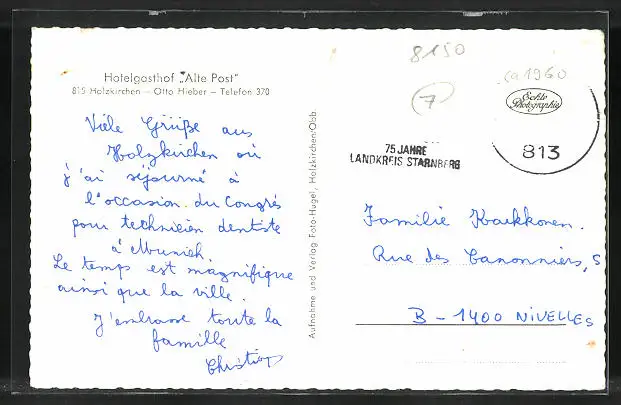 Hotelgasthof „Alte Post"
815 Holzkirchen — Otto Hieber — Telefon 370
Viele Grüße aus
Holzkirchen où
j'ai séjourné à
l'occasion du Congrès
pour technicien dentiste
à Munich.
Le temps est magnifique
ainsi que la ville.
J'embrasse toute la
famille
Aufnahme und Verlag Foto-Hugel, Holzkirchen/Obb.
8150
7
ca 1960
Echte
Photographie
75 JAHRE
LANDKREIS STARNBERG
813
Familie Kaekkonen.
Rue des Canonniers, 5
B - 1400 NIVELLES